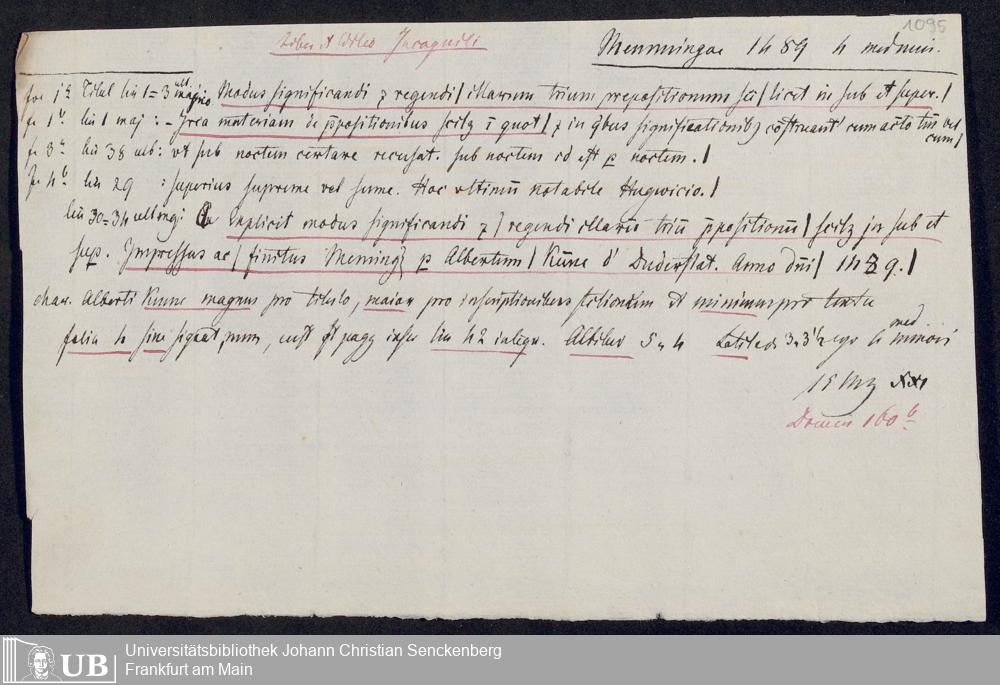 1095
Liber et Video Incogniti
Memmingae 1489 4 med min.
fol 1a Titul lin 1=3 maj: Modus significandi ⁊ regendi/ illarum trium prepositionum scil/ licet in sub et super./
fo 1b lin 1 maj: - Irca materiam de ppositionibus scilz ī quot/ ⁊ in qbus significationibz construant cum acto tm vel cum/
fo 3a lin 38 ulb: vt sub noctem certare recusat. sub noctem id est p noctem./
fo 4b lin 29 : superius supreme vel sume. Hoc vltimum notabile Hugwicio./
lin 30=34 Explicit modus significandi ⁊/ regendi illarū triū ppositionū/ scilz in sub et
sup. Impressus ac/ finitus Memingz p Albertum/ Kūne d' Duderstat. Anno dni/ 1489./
char. Alberti Kunne magnus pro titulo, maior pro inscriptionibus et minimus pro textu
folia 4 sine signat, num, cust et pagg lin 42 integr. Altitud 5 4 Latitud 3 3 1/2 ergo 4 med minori
160b
Universitätsbibliothek Johann Christian Senckenberg
Frankfurt am Main
UB